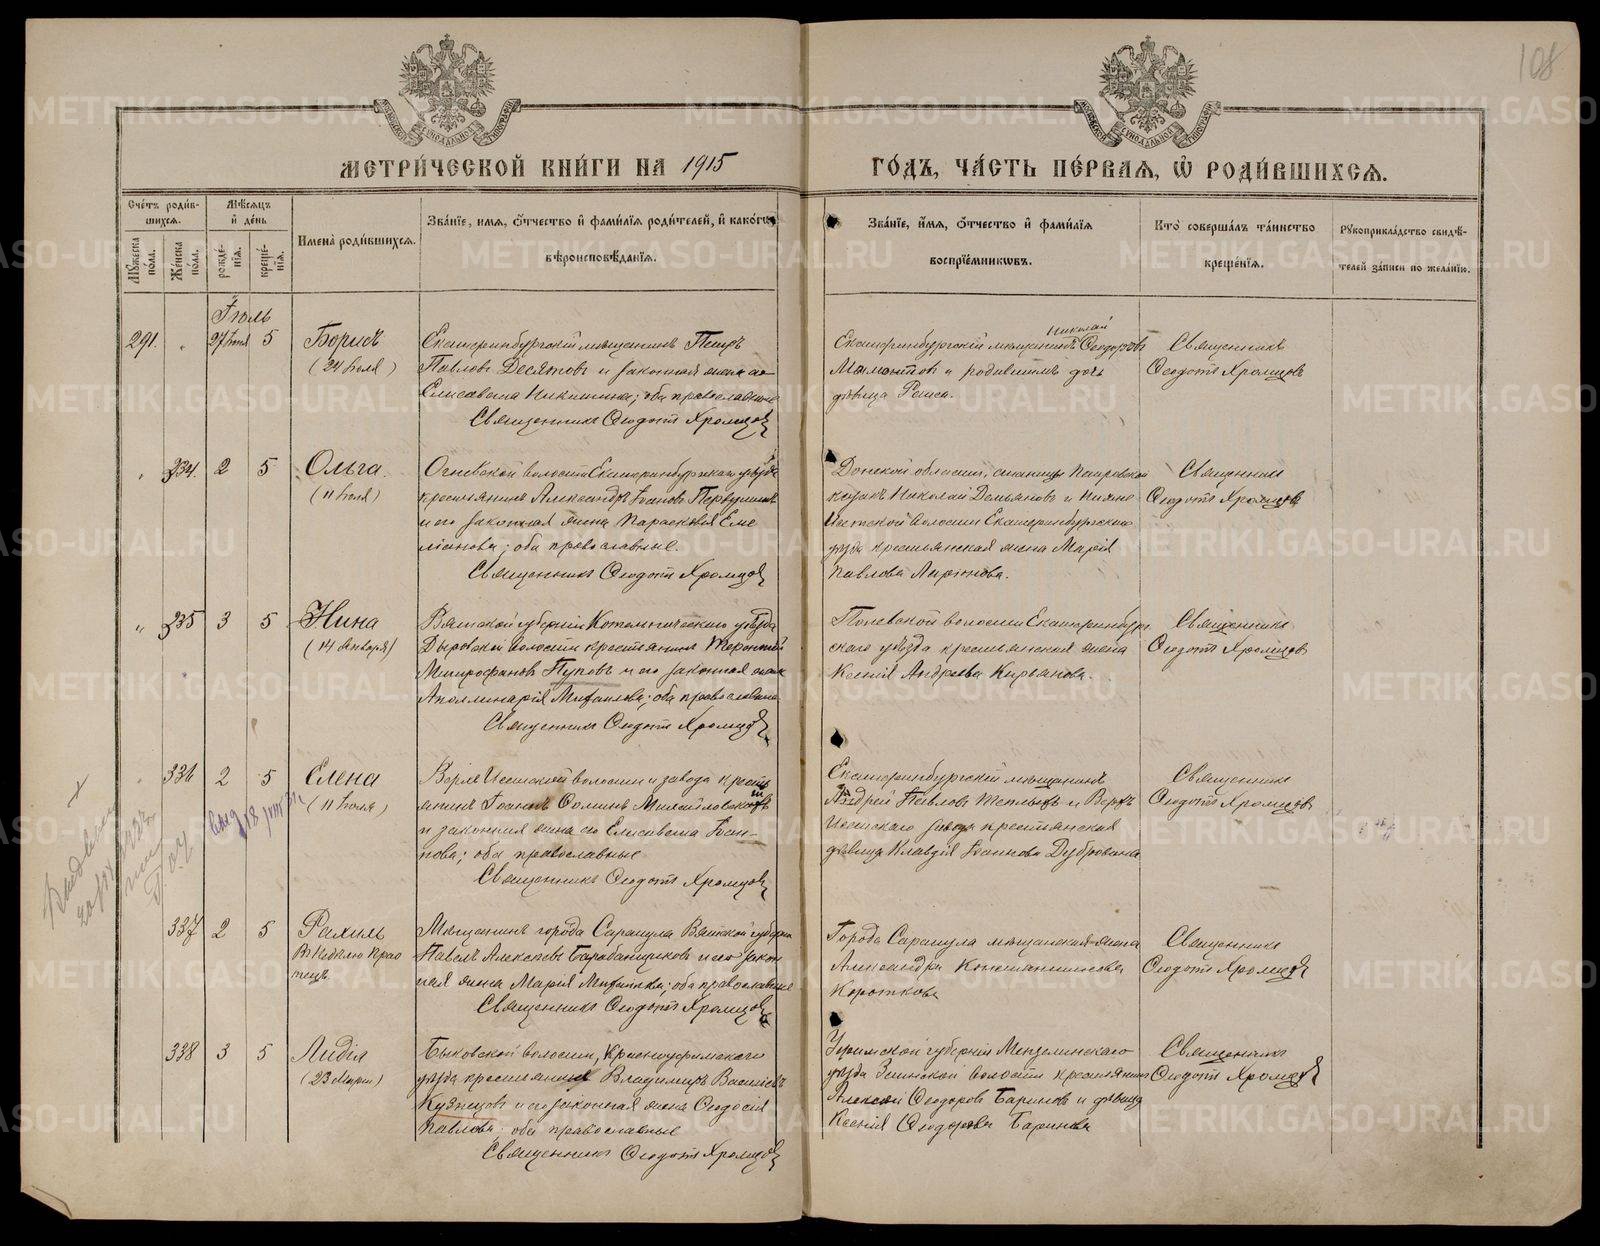 108
МЕТРИ́ЧЕСКОЙ КНИ́ГИ НА 1915 ГО́ДЪ, ЧА́СТЬ ПЕ́РВАЯ, Ѡ҆ РОДИ́ВШИХСѦ.
Сче́тъ роди́вшихся.
Му́жеска по́ла.
Же́нска по́ла.
Мѣ́сяцъ и҆ де́нь
рожде́нія.
креще́нія.
И҆мена̀ роди́вшихся.
Зва́нїе, и҆мя, ѻ҆́тчество и҆ фами́лїя роди́телей, и҆ како́гѡ
вѣроисповѣ́данїя.
Зва́нїе, и҆́мя, ѻ҆́тчество и҆ фами́лїя
воспрїе́мникѡвъ.
Кто̀ соверша́лъ та́инство
креще́нїя.
Рукоприкла́дство свидѣ́-
телей за́писи по жела́нїю.
Іюль
291. 27 Іюня 5 Борисъ
(24 Іюля)
Екатеринбургскій мѣщанинъ Петръ
Павловъ Десятовъ и законная жена его
Елисавета Никитина; оба православные
Священникъ Ѳеодотъ Хромцовъ
Екатеринбургскій мѣщанинъ Николай Ѳеодоровъ
Мамонтовъ и родившимъ дочь
дѣвица Раиса.
Священникъ
Ѳеодотъ Хромцовъ
334. 2 5 Ольга
(11 Іюля)
волости Екатеринбургскаго уѣзда
крестьянинъ Александръ Іоановъ Первушинъ
и его законная жена Параскевія Еме
ліанова; оба православные.
Священникъ Ѳеодотъ Хромцовъ
Донской области, станицы
казакъ Николай Демьяновъ и Нижне
Исетской волости Екатеринбургскаго
уѣзда крестьянская жена Марія
Павлова
Священникъ
Ѳеодотъ Хромцовъ
335 3 5 Нина
(14 Января)
Вятской губерніи Котельническаго уѣзда
волости крестьянинъ Терентій
Митрофановъ Пуповъ и его законная жена
Аполлинарія Михаилова; оба православные
Священникъ Ѳеодотъ Хромцовъ
Полевской волости Екатеринбург
скаго уѣзда крестьянская жена
Ксенія Андреева Кирьянова.
Священникъ
Ѳеодотъ Хромцовъ
336 2 5 Елена
(11 Іюля)
Верхъ Исетской волости и завода кресть
янинъ Іоаннъ Ѳоминъ Михайловскій
и законная жена его Елисавета Іоан-
нова; оба православные
Священникъ Ѳеодотъ Хромцовъ
Екатеринбургскій мѣщанинъ
Андрей Павловъ и Верхъ
Исетскаго завода крестьянская
дѣвица Клавдія Іоаннова Дубровина
Священникъ
Ѳеодотъ Хромцовъ
337 2 5 Рахиль
въ недѣлю Прао
тецъ
Мѣщанинъ города Сарапула Вятской губерніи
Павелъ Алексѣевъ Барабанщиковъ и его закон
ная жена Марія Михайлова; оба православные
Священникъ Ѳеодотъ Хромцовъ
Города Сарапула мѣщанская жена
Александра Константинова
Короткова
Священникъ
Ѳеодотъ Хромцовъ
338 3 5 Лидія
(23 Марта)
Быковской волости, Красноуфимскаго
уѣзда крестьянинъ Владимиръ Васильевъ
Кузнецовъ и его законная жена Ѳеодосія
Павлова; оба православные
Священникъ Ѳеодотъ Хромцовъ
Уфимской губерніи Мензелинскаго
уѣзда волости крестьянинъ
Алексѣй Ѳеодоровъ Бариновъ и дѣвица
Ксенія Ѳеодорова Баринова
Священникъ
Ѳеодотъ Хромцовъ
METRIKI.GASO-URAL.RU